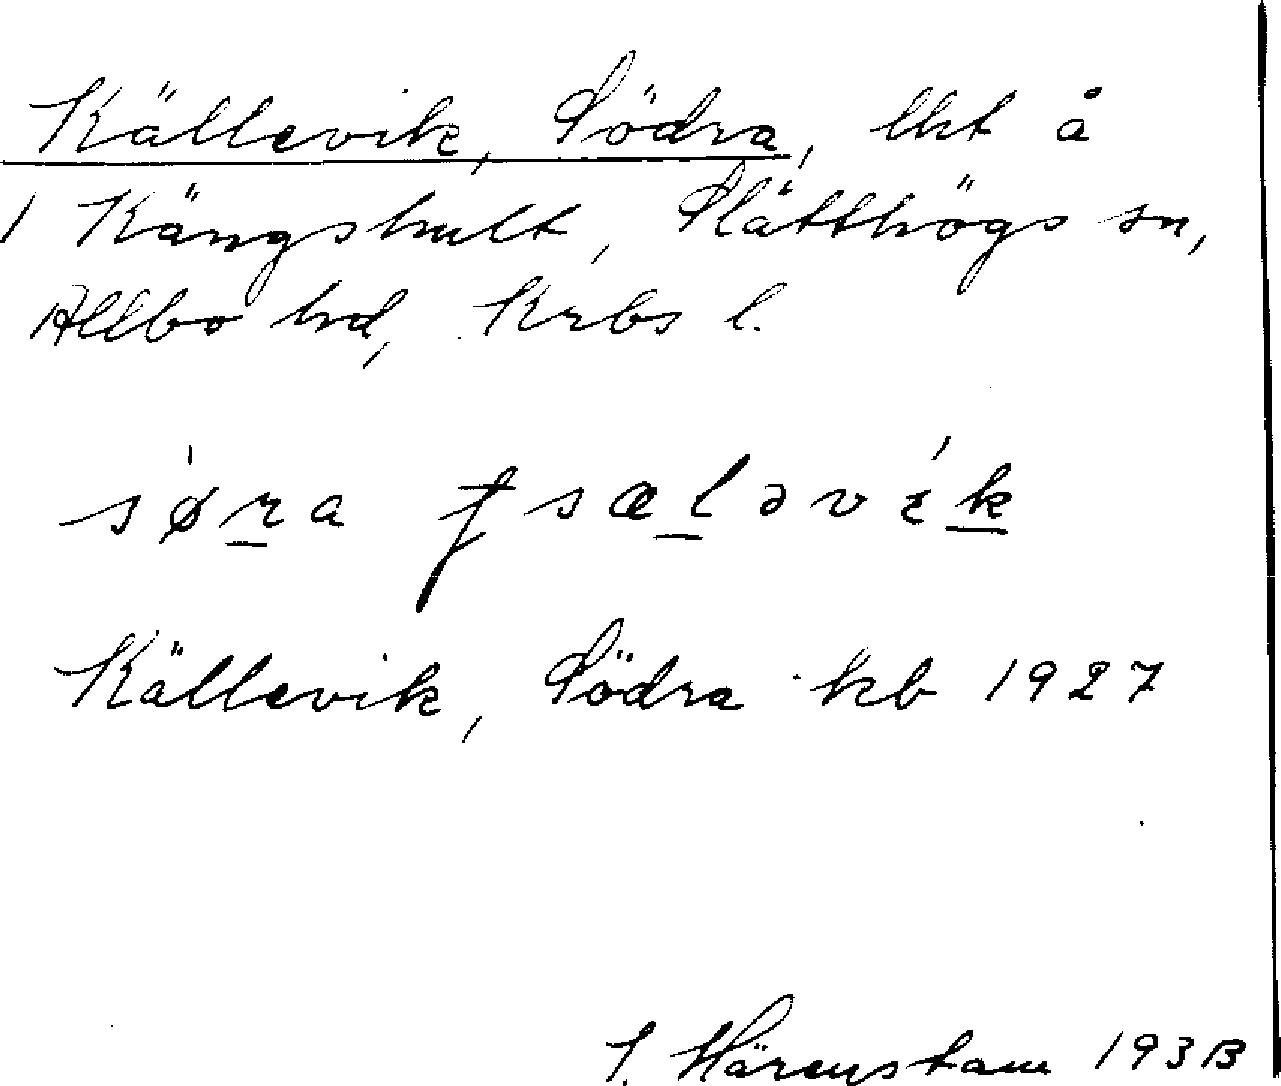 Källevik, Södra, lht å
1 Kängshult, Slätthögs sn,
Allbo hd, Krbs l.
sø̍ra ʄsæləvɛ́k
Källevik, Södra kb 1927
J. Härenstam 1938